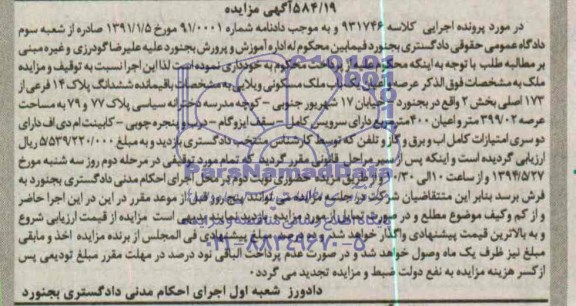 ۵۸۴/۱۹آگهی مزایده
در مورد پرونده اجرایی کلاسه ۹۳۱۷۴۶ و به موجب دادنامه شماره ۹۱/۰۰۰۱ مورخ ۱۳۹۱/۱/۵ صادره از شعبه سوم
دادگاه عمومی حقوقی دادگستری بجنورد فیمابین محکوم له اداره آموزش و پرورش بجنورد علیه علیرضا گودرزی و غیره مبنی
بر مطالبه طلب با توجه به اینکه محکوم علیه از پرداخت محکوم به خودداری نموده است لذا این اجرا نسبت به توقیف و مزایده
ملک به مشخصات فوق الذکر عرصه و اعیان یک باب ملک مسکونی ویلایی به مشخصات باقیمانده ششدانگ پلاک ۱۴ فرعی از
۱۷۳ اصلی بخش ۲ واقع در بجنورد - خیابان ۱۷ شهریور جنوبی - کوچه مدرسه دخترانه سیاسی پلاک ۷۷ و ۷۹ به مساحت
عرصه ۳۹۹/۰۲ متر و اعیان ۴۰۰ مترمربع دارای سرویس کامل - سقف ایزوگام - درب و پنجره چوبی - کابینت ام دی اف دارای
دو سری امتیازات کامل اب و برق و گاز و تلفن که توسط کارشناس منتخب دادگستری بازدید و به مبلغ ۵/۵۳۹/۲۲۰/۰۰۰ ریال
ارزیابی گردیده است و اینکه پس از سیر مراحل قانونی مقرر گردید که تمام مورد توقیفی در مرحله دوم روز سه شنبه مورخ
۱۳۹۴/۵/۲۷ و از ساعت ۱۰ الی ۱۰/۳۰ از طریق مزایده حضوری نوبت دوم در محل اجرای احکام مدنی دادگستری بجنورد به
فرش برسد بنابر این متقاضیان شرکت در جلسه مزایده می توانند پنج روز قبل از موعد مقرر در این در این اجرا حاضر
و از کم و کیف موضوع مطلع و در صورت تمایل از مورد مزایده بازدید نمایند بدیهی است مزایده از قیمت ارزیابی شروع
و به بالاترین قیمت پیشنهادی واگذار خواهد شد و ده درصد مبلغ پیشنهادی فی المجلس از برنده مزایده اخذ و مابقی
مبلغ نیز ظرف یک ماه وصول خواهد شد و در صورت عدم پرداخت الباقی نود درصد در مهلت مقرر مبلغ تودیعی پس
از کسر هزینه مزایده به نفع دولت ضبط و مزایده تجدید می گردد.
دادورز شعبه اول اجرای احکام مدنی دادگستری بجنورد
ParsNamadData
۰۲۱-۸۸۳۴۹۶۷۰-۵